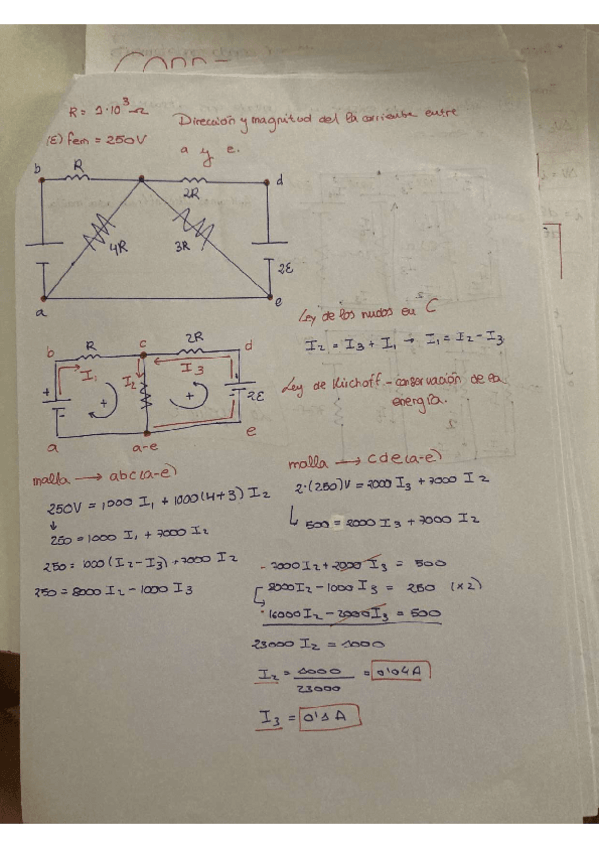 R = 1·10³ Ω
Dirección y magnitud del la corriente entre
(ε) fem = 250V
a y e.
b R 2R d
4R 3R
2ε
a e
Ley de los nudos en C
I₂ = I₃ + I₁ → I₁ = I₂ - I₃
b R c 2R d
I₁ I₂ I₃
+ + + 2ε
a a-e e
Ley de Kirchoff - conservación de la
energía.
malla → abc(a-e)
250V = 1000 I₁ + 1000(4+3) I₂
↓
250 = 1000 I₁ + 7000 I₂
250 = 1000 (I₂ - I₃) + 7000 I₂
250 = 8000 I₂ - 1000 I₃
malla → cde(a-e)
2·(250)V = 2000 I₃ + 7000 I₂
500 = 2000 I₃ + 7000 I₂
7000 I₂ + 2000 I₃ = 500
8000 I₂ - 1000 I₃ = 250 (x2)
16000 I₂ - 2000 I₃ = 500
23000 I₂ = 1000
I₂ = 1000 / 23000 = 0'04 A
I₃ = 0'1 A